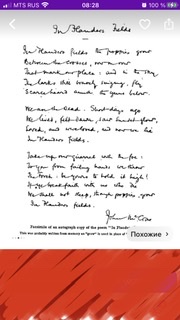 MTS RUS
08:28
71 %
In Flanders Fields
In Flanders fields the poppies grow
Between the crosses, row on row
That mark our place; and in the sky
The larks still bravely singing, fly
Scarce heard amid the guns below.
We are the Dead. Short days ago
We lived, felt dawn, saw sunset glow,
Loved, and were loved, and now we lie
In Flanders fields.
Take up our quarrel with the foe:
To you from failing hands we throw
The torch: be yours to hold it high!
If ye break faith with us who die
We shall not sleep, though poppies grow
In Flanders fields.
John McCrae
Facsimile of an autograph copy of the poem "In Flande
This was probably written from memory as "grow" is used in place of "
Похожие >